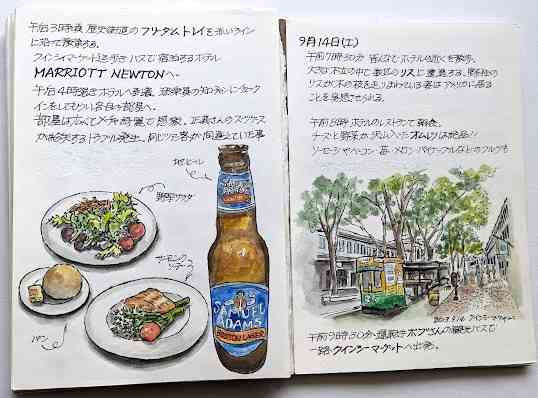 午后3時半頃、歴史街道のフリーダムトレイルを赤いライン
に沿って散策する。
クインシーマーケット近から バスで宿泊するホテル
MARRIOTT NEWTONへ。
午后4時 ホテルへ到着、
インをしてもらい 各自の部屋へ。
部屋は広くてメチャ綺麗で感激。
が紛失するトラブル発生、同じツアー客が間違えていた事
地ビール
野菜サラダ
パン
SAMUEL
ADAMS
BOSTON LAGER
9月14日(土)
午前7時30分 皆んなでホテルの近くを散歩。
大きな木立の中で数匹のリスに遭遇する。野生の
リスが木の枝を走りまわっている姿はアメリカに居る
ことを実感させられる。
午前8時 ホテルのレストランで朝食。
チーズと野菜が沢山入ったオムレツは絶品!!
ソーセージやベーコン、苺・メロン・パイナップルなどのフルーツも
クインシーマーケット
午前9時30分・運転手 ボブさんの観光バスで
一路・クインシーマーケットへ出発。